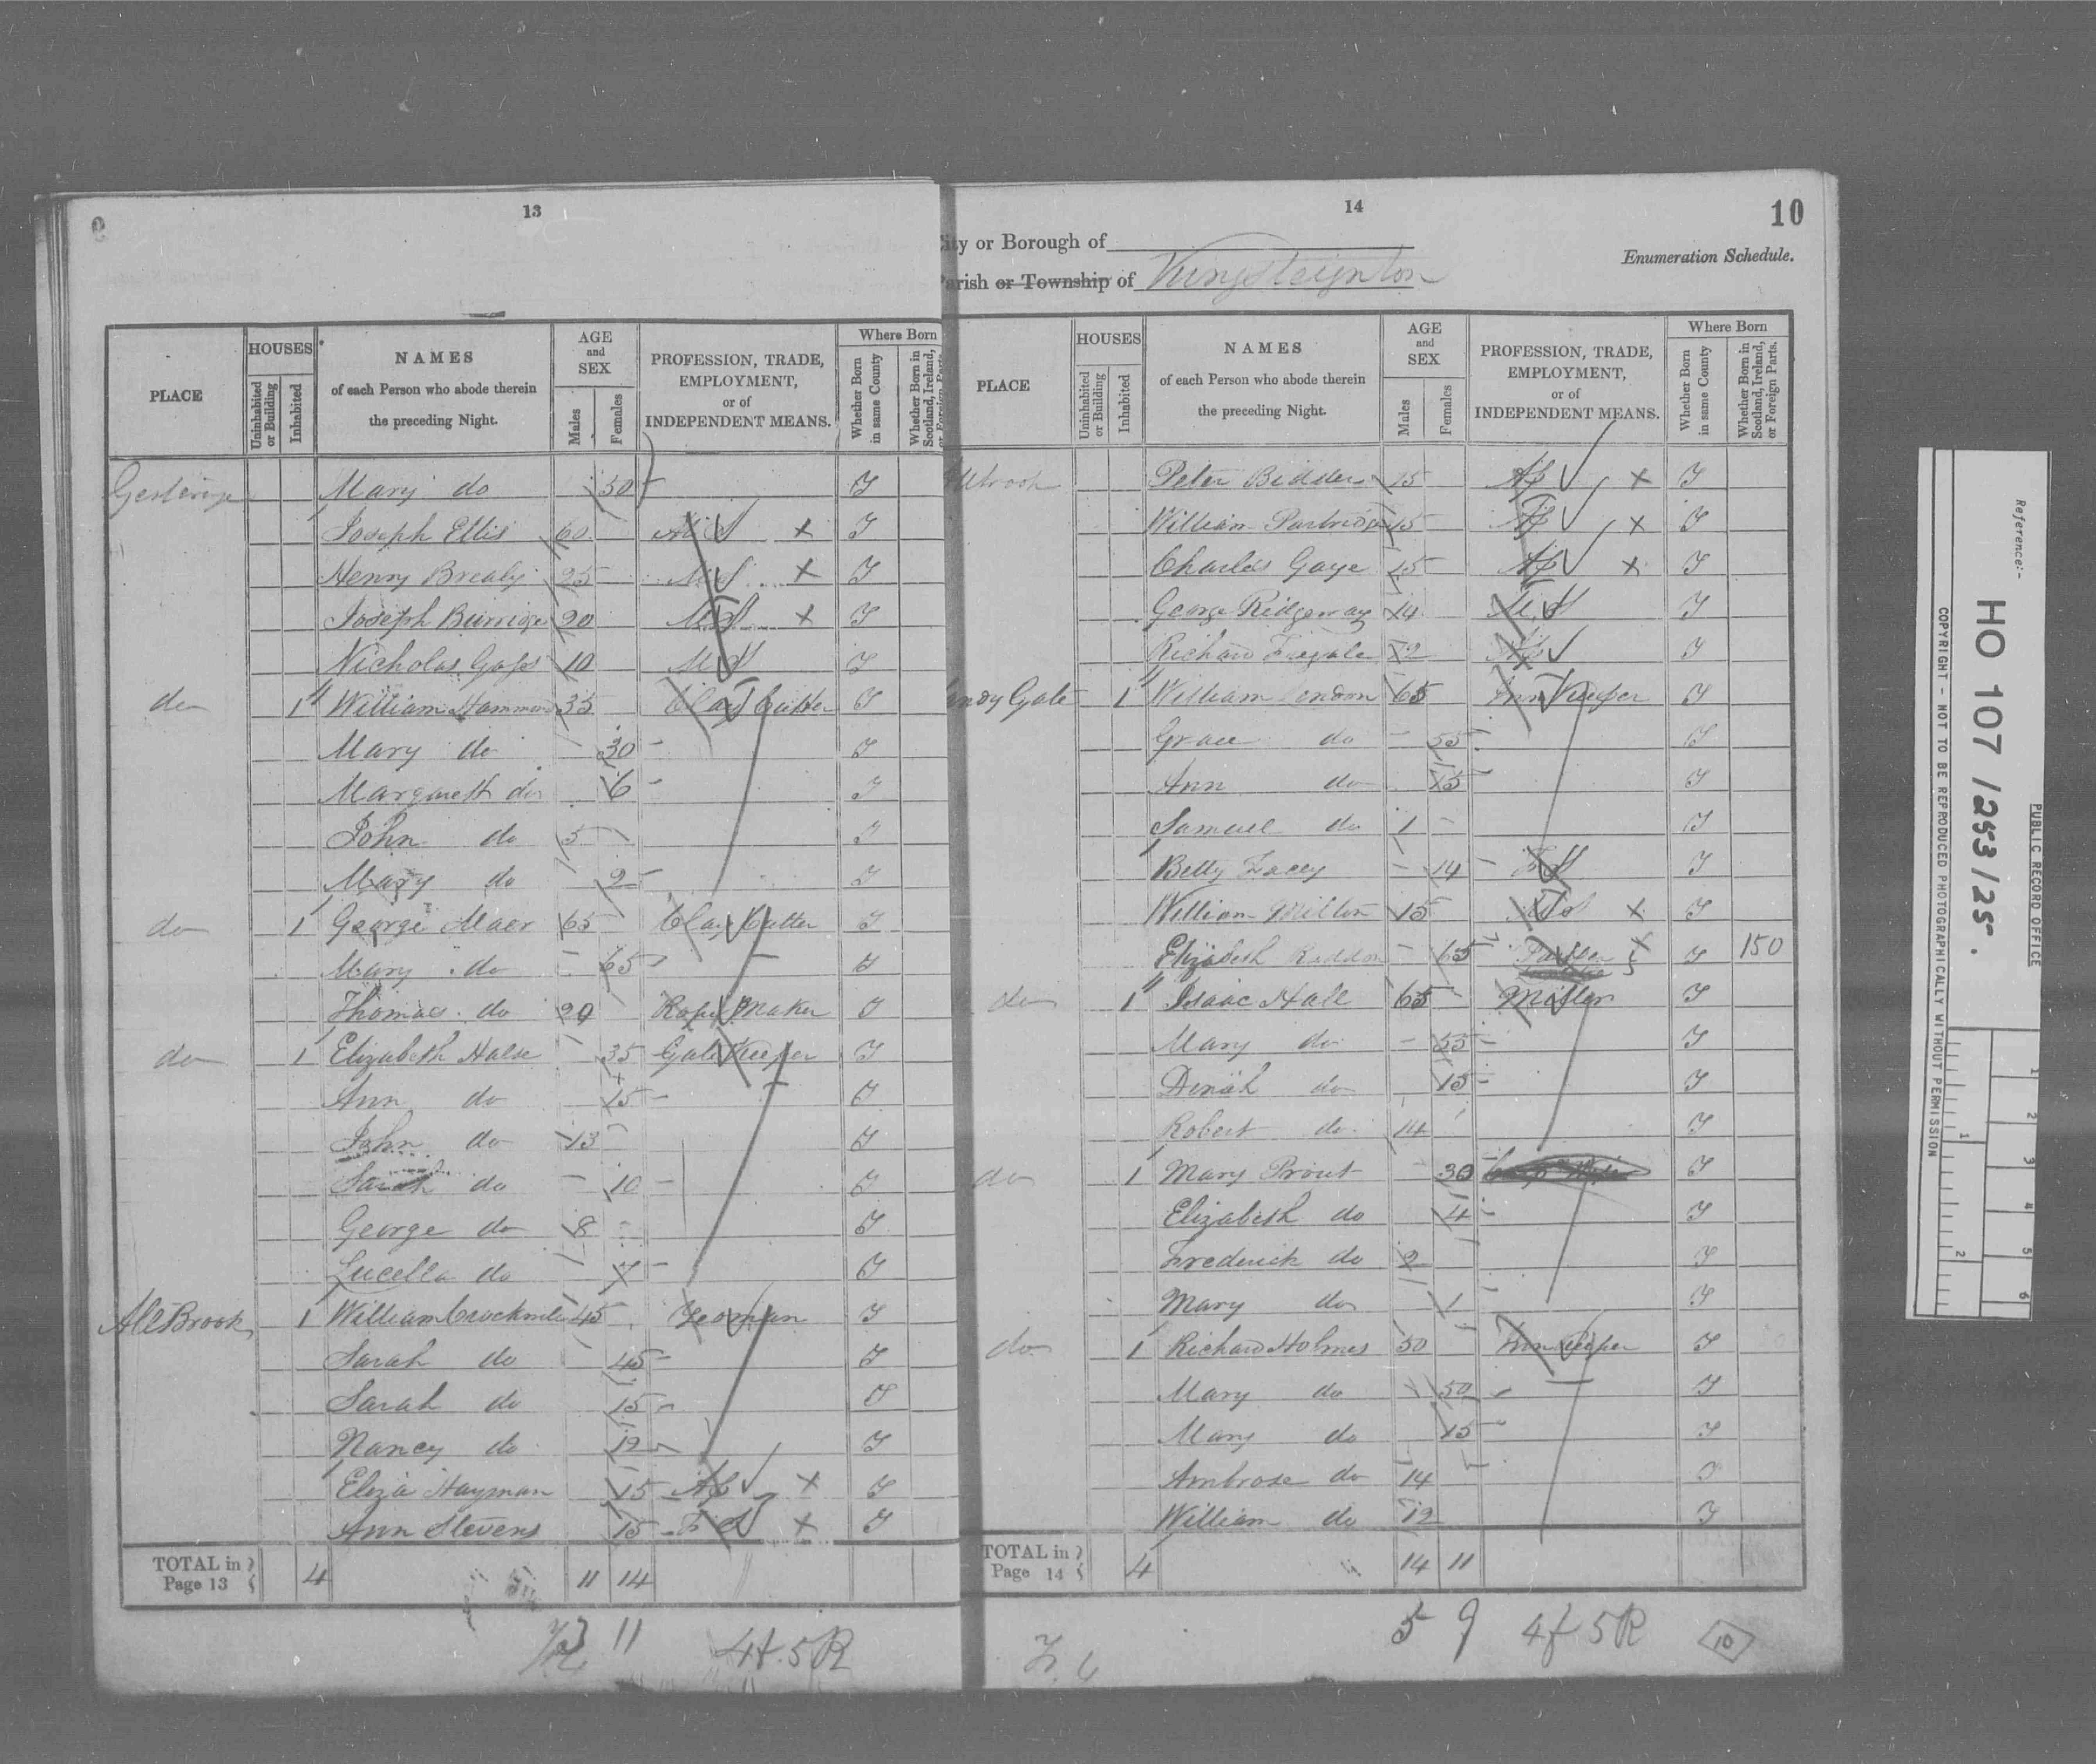 13
PLACE
HOUSES
Uninhabited or Building
Inhabited
NAMES
of each Person who abode therein
the preceding Night.
AGE
and
SEX
Males
Females
PROFESSION, TRADE,
EMPLOYMENT,
or of
INDEPENDENT MEANS.
Where Born
Whether Born in same County
Whether Born in Scotland, Ireland, or Foreign Parts
Mary do 30 Y
Joseph Ellis 60 M S Y
Henry Brealy 25 M S Y
Joseph Burridge 20 M S Y
Nicholas 10 M S Y
do 1 William Hammond 35 Clay Cutter Y
Mary do 30 Y
Margarett do 6 Y
John do 5 Y
Mary do 2 Y
do 1 George Maer 65 Clay Cutter Y
Mary do 65 Y
Thomas do 20 Rope Maker Y
do 1 Elizabeth Halse 35 Gate Keeper Y
Ann do 15 Y
John do 13 Y
Sarah do 10 Y
George do 8 Y
Lucella do 7 Y
1 William 45 Yeoman Y
Sarah do 45 Y
Sarah do 15 Y
Nancy do 12 Y
Eliza Hayman 15 Ap Y
Ann Stevens 15 F S Y
TOTAL in Page 13 4 11 14
11 4f 5R
14
10
City or Borough of
Parish or Township of Kingsteignton
Enumeration Schedule.
PLACE
HOUSES
Uninhabited or Building
Inhabited
NAMES
of each Person who abode therein
the preceding Night.
AGE
and
SEX
Males
Females
PROFESSION, TRADE,
EMPLOYMENT,
or of
INDEPENDENT MEANS.
Where Born
Whether Born in same County
Whether Born in Scotland, Ireland, or Foreign Parts.
Peter Bidder 15 Ap Y
William Partridge 15 Ap Y
Charles Gaye 15 Ap Y
George Ridgeway 14 M S Y
Richard 12 Ap Y
andy Gate 1 William 65 Inn Keeper Y
Grace do 55 Y
Ann do 15 Y
Samuel do 1 Y
Betty Lacey 14 F S Y
William Milton 15 M S Y
Elizabeth 65 Y 150
do 1 Isaac Hall 65 Miller Y
Mary do 55 Y
Dinah do 15 Y
Robert do 14 Y
do 1 Mary Prout 30 Y
Elizabeth do 4 Y
Frederick do 2 Y
Mary do 1 Y
do 1 Richard Holmes 50 Inn Keeper Y
Mary do 50 Y
Mary do 15 Y
Ambrose do 14 Y
William do 12 Y
TOTAL in Page 14 4 14 11
5 9 4f 5R 10
Reference:-
HO 107 / 1253/25.
PUBLIC RECORD OFFICE
COPYRIGHT - NOT TO BE REPRODUCED PHOTOGRAPHICALLY WITHOUT PERMISSION
1
2
1
2
3
4
5
6